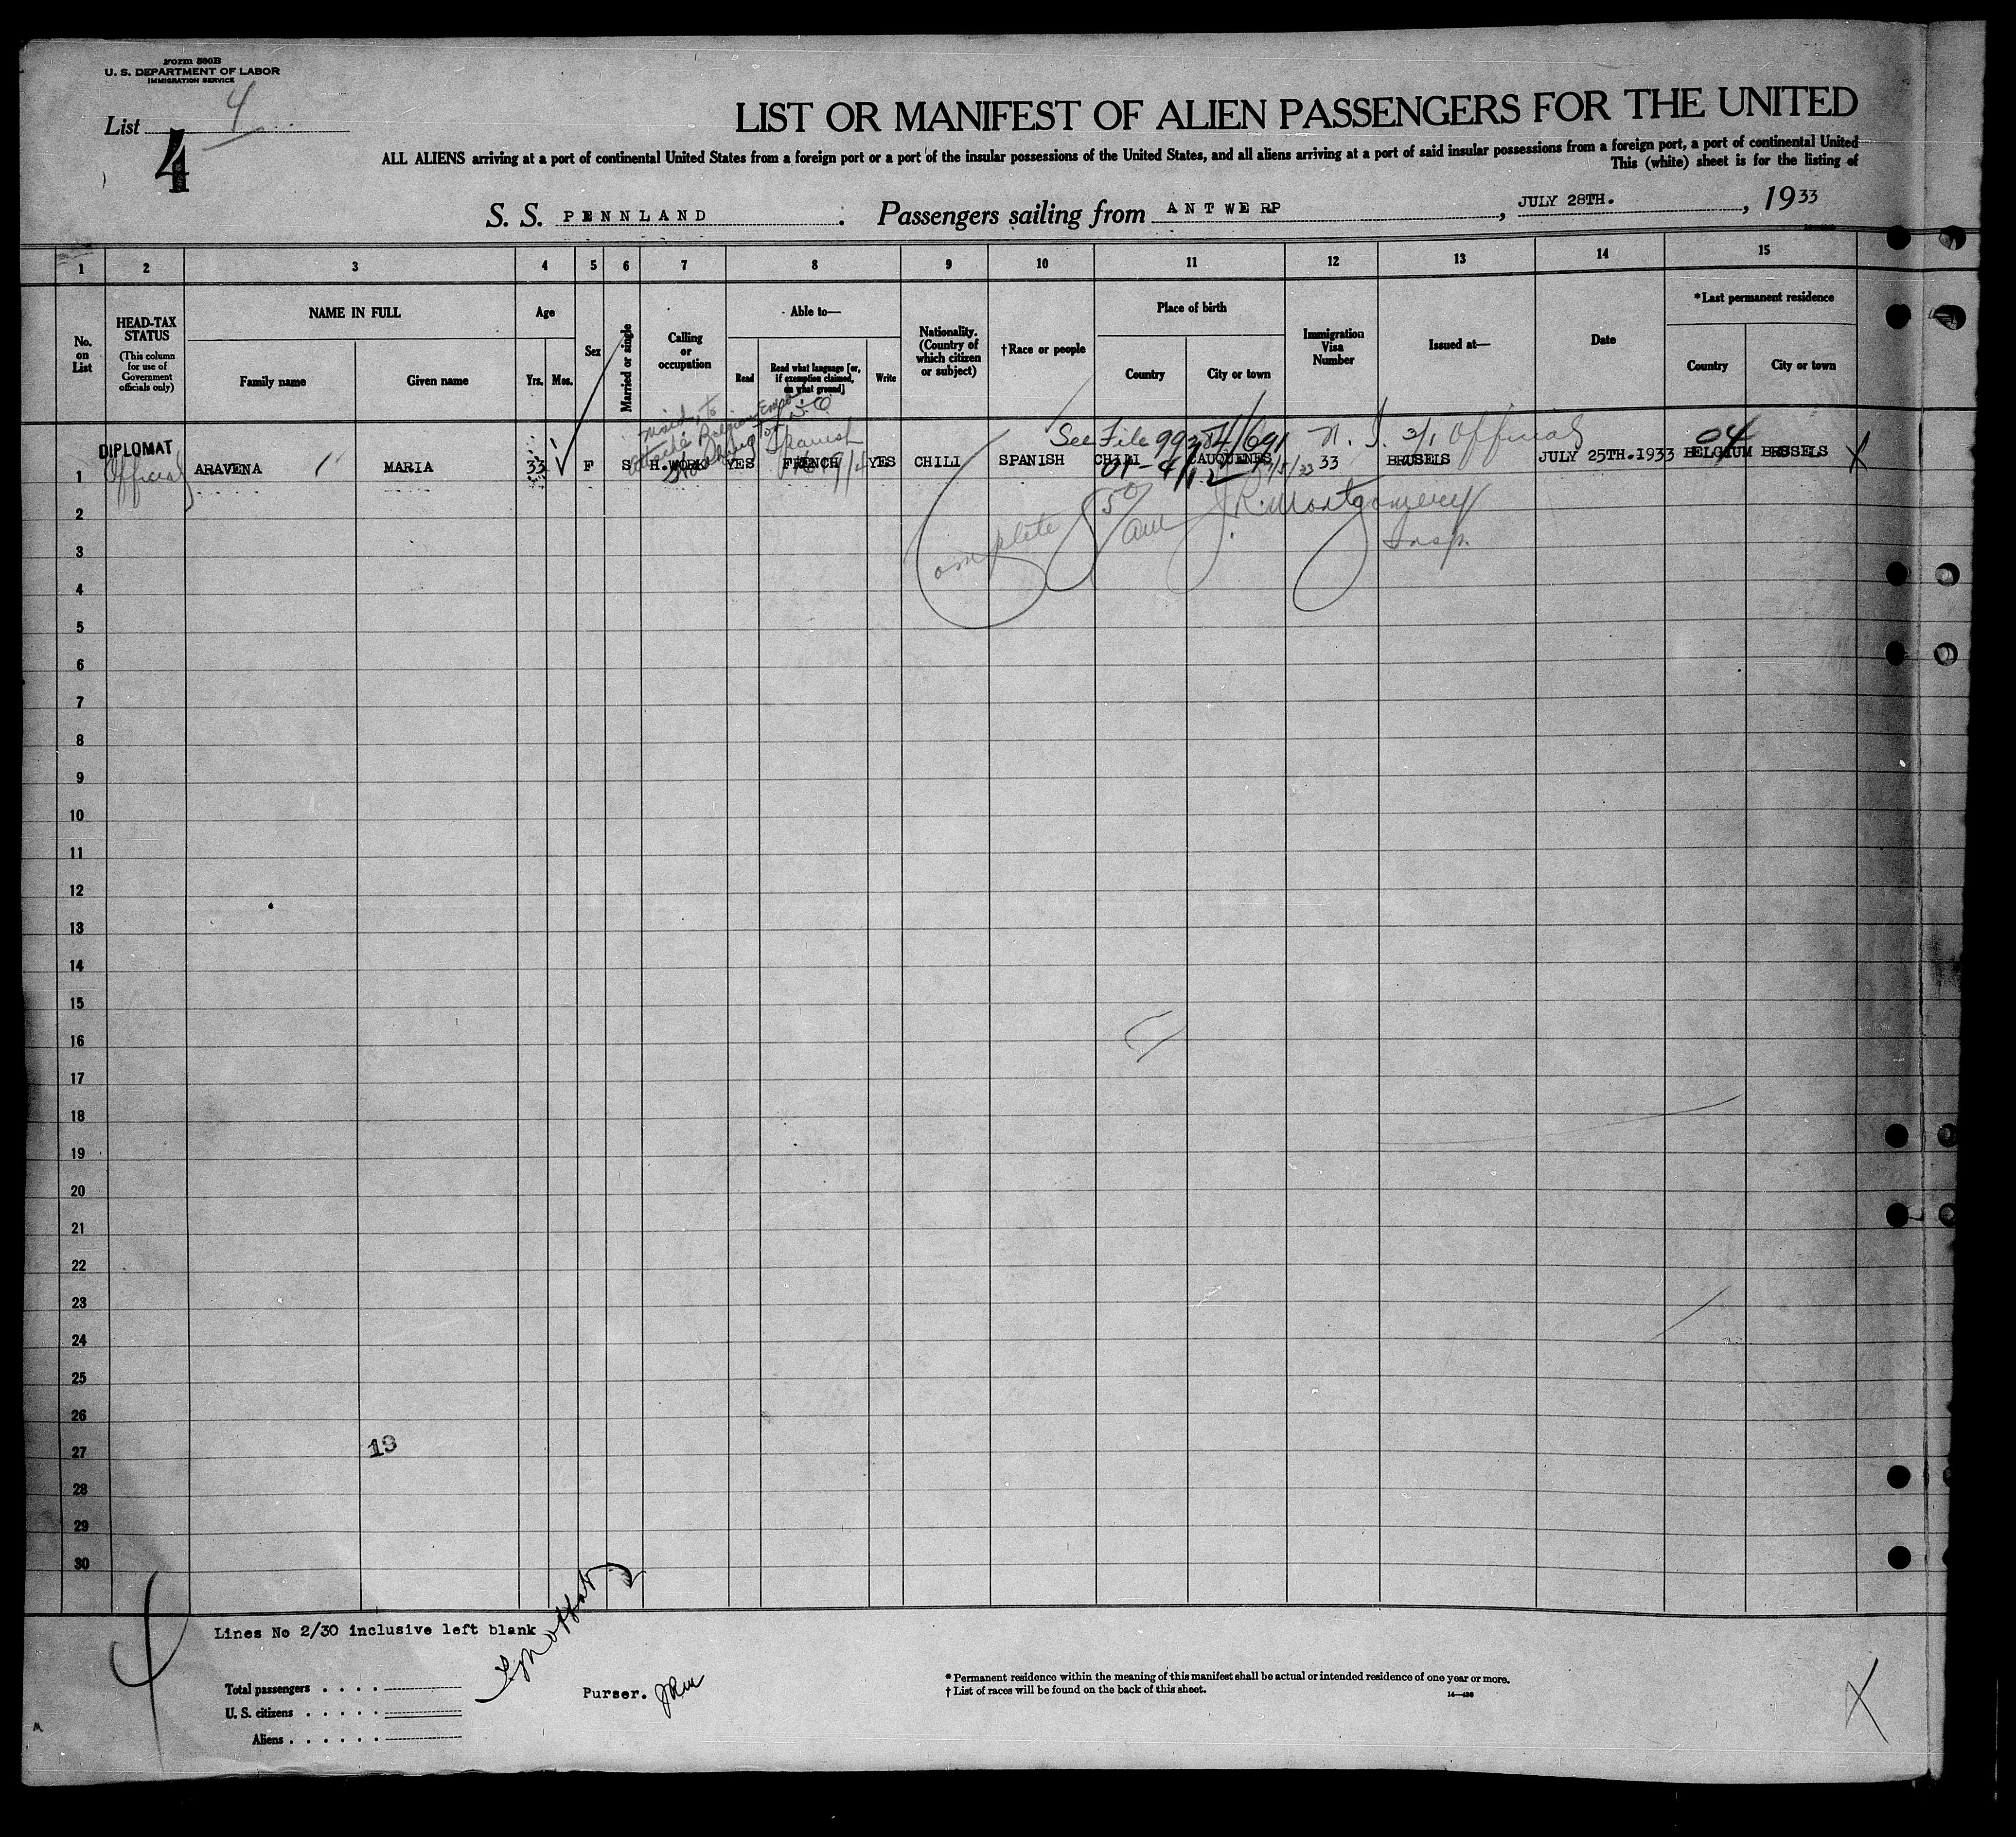 Form 500B
U. S. DEPARTMENT OF LABOR
IMMIGRATION SERVICE
List 4
4
LIST OR MANIFEST OF ALIEN PASSENGERS FOR THE UNITED
ALL ALIENS arriving at a port of continental United States from a foreign port or a port of the insular possessions of the United States, and all aliens arriving at a port of said insular possessions from a foreign port, a port of continental United
This (white) sheet is for the listing of
S. S. PENNLAND . Passengers sailing from ANTWERP , JULY 28TH. , 1933
1 2 3 4 5 6 7 8 9 10 11 12 13 14 15
No. on List
HEAD-TAX STATUS
(This column for use of Government officials only)
NAME IN FULL
Family name
Given name
Age
Yrs.
Mos.
Sex
Married or single
Calling or occupation
Able to—
Read
Read what language [or, if exemption claimed, on what ground]
Write
Nationality. (Country of which citizen or subject)
†Race or people
Place of birth
Country
City or town
Immigration Visa Number
Issued at—
Date
*Last permanent residence
Country
City or town
maid to
attaché Belgian Emb.
Washington D.C.
Spanish
See File 99384/691 N. I. 3/1 Official
04
DIPLOMAT
Official
1 ARAVENA MARIA 33 F S H.WORK YES FRENCH YES CHILI SPANISH CHILI CAUQUENES 33 BRUSELS JULY 25TH.1933 BELGIUM BRSSELS X
2
Complete J.R. Montgomery
Insp.
3
4
5
6
7
8
9
10
11
12
13
14
15
16
17
18
19
20
21
22
23
24
25
26
27
13
28
29
30
Lines No 2/30 inclusive left blank
Total passengers . . . .
U. S. citizens . . . . .
Aliens . . . . . .
Purser. JRM
* Permanent residence within the meaning of this manifest shall be actual or intended residence of one year or more.
† List of races will be found on the back of this sheet.
14—430
X